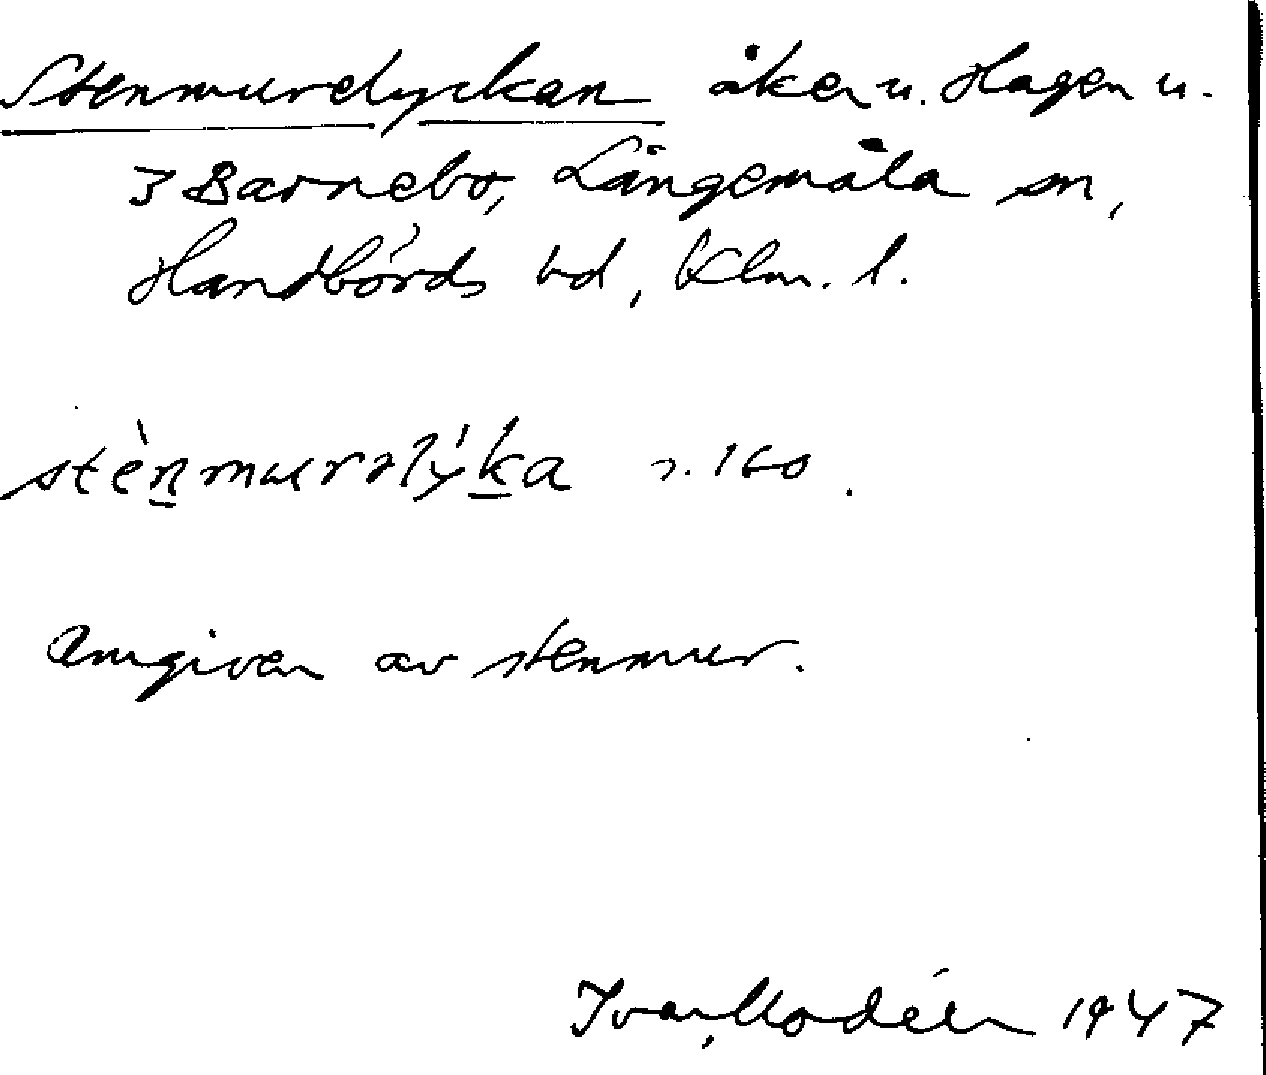 Stenmurelyckan åker u. Hagen u.
3 Barnebo, Långemåla sn,
Handbörds hd, Klm. l.
stènmurəlýka s. 160.
Omgiven av stenmur.
Ivar Modéer 1947